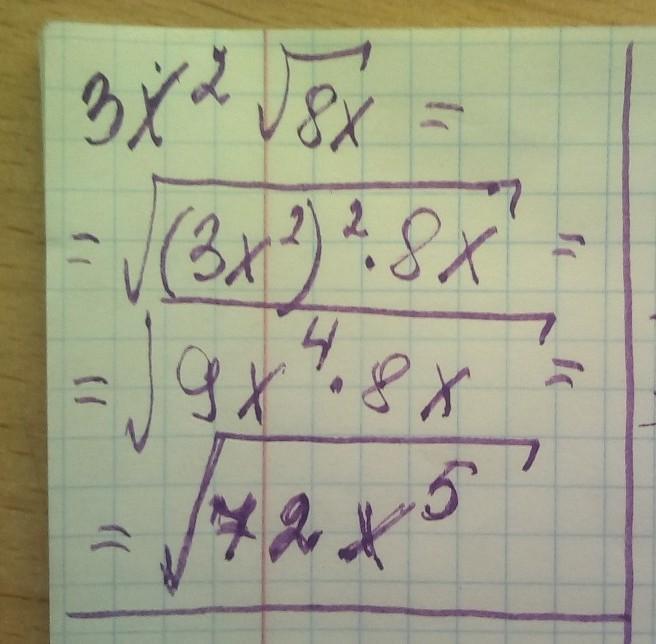 3x² √8x =
= √(3x²)² · 8x =
= √9x⁴ · 8x =
= √72x⁵